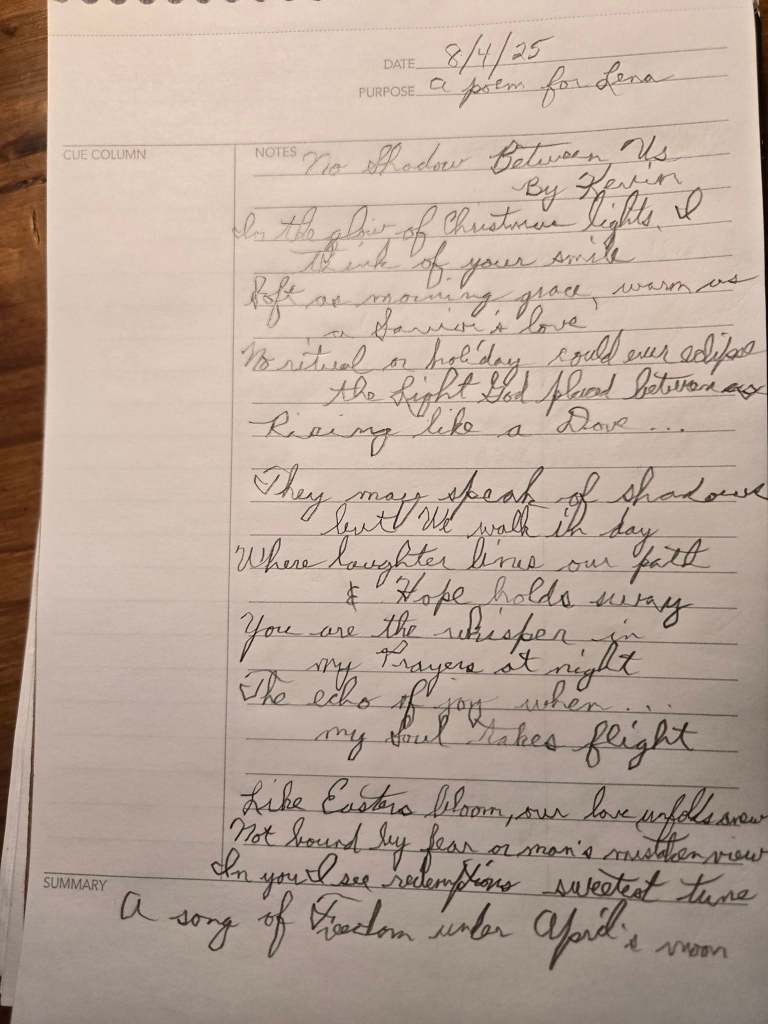 DATE 8/4/25
PURPOSE a poem for Lena
CUE COLUMN
NOTES No Shadow Between Us
By Kevin
In the glow of Christmas lights, I
think of your smile
Soft as morning grace, warm as
a Savior's love
No ritual or holiday could ever eclipse
the Light God placed between
Rising like a Dove ...
They may speak of shadows
but We walk in day
Where laughter lines our path
& Hope holds sway
You are the whisper in
my Prayers at night
The echo of joy when ...
my Soul takes flight
Like Easters bloom, our love unfolds anew
Not bound by fear or man's mistaken view
In you I see redemptions sweetest tune
SUMMARY
A song of Freedom under April's moon